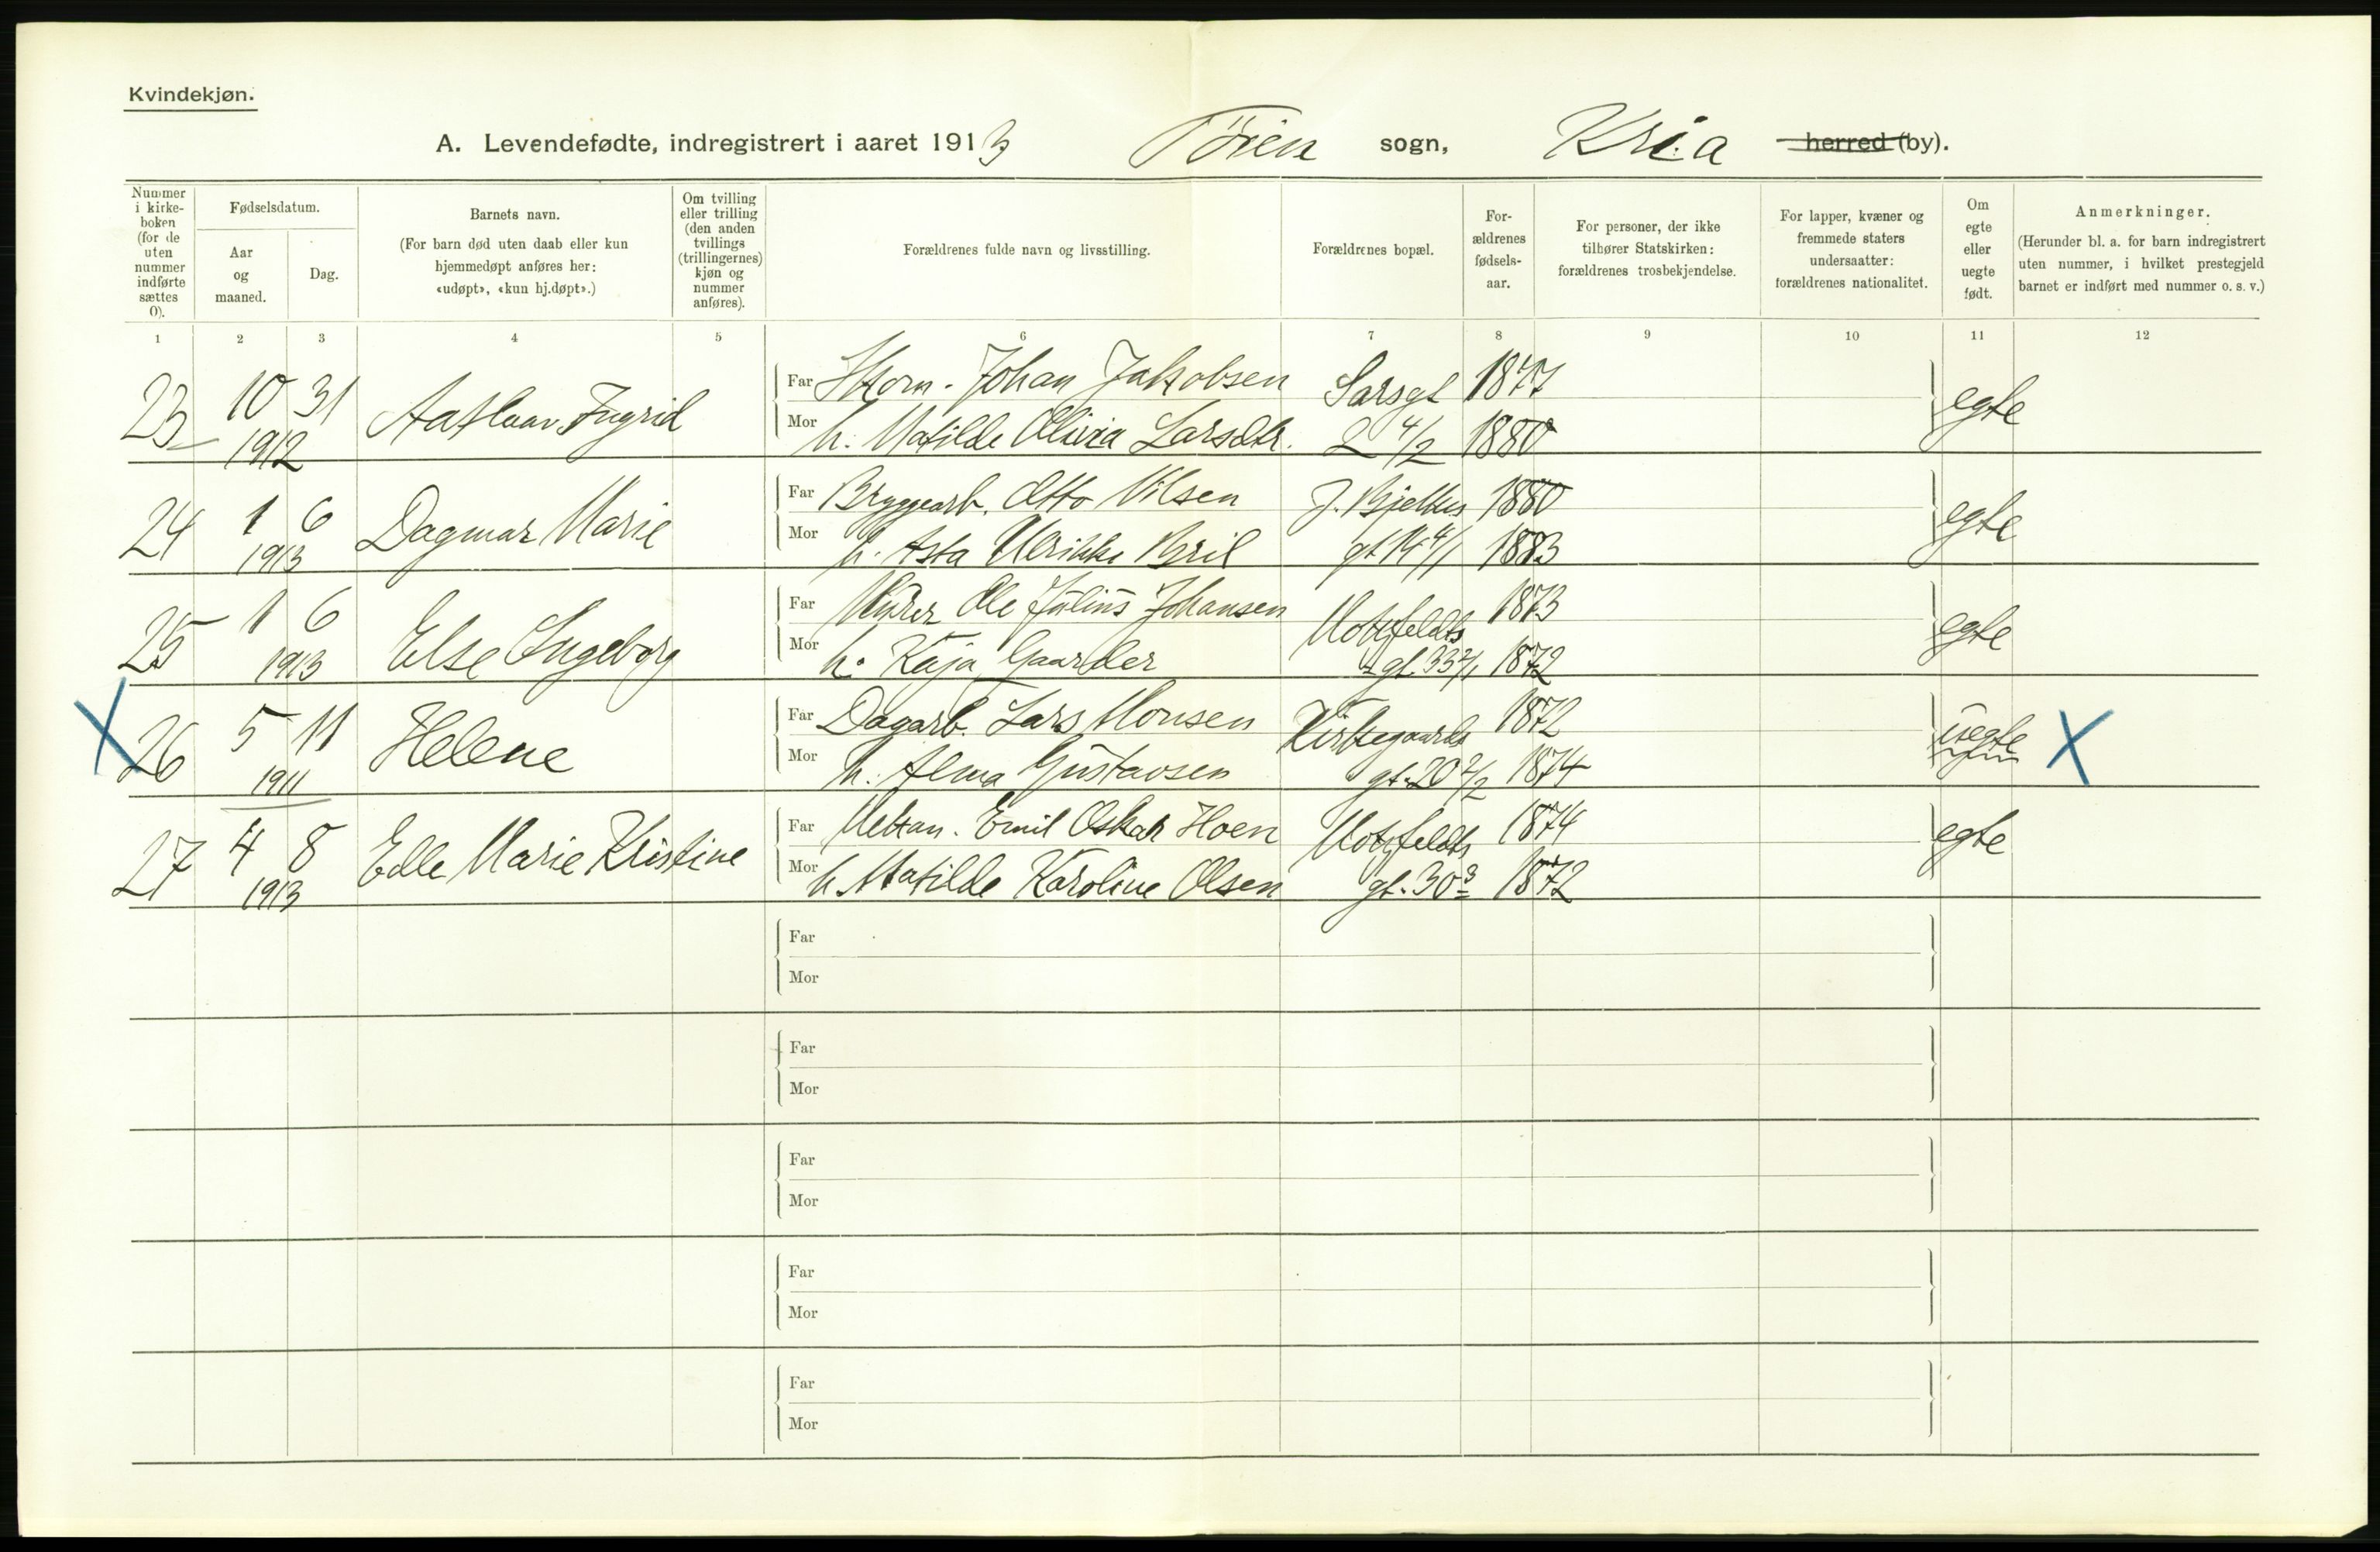 Kvindekjøn.
A. Levendefødte, indregistrert i aaret 1913 Töien sogn, Kr.a herred (by).
Nummer i kirkeboken (for de uten nummer indførte sættes 0).
Fødselsdatum.
Aar og maaned.
Dag.
Barnets navn.
(For barn død uten daab eller kun hjemmedøpt anføres her: «udøpt», «kun hj.døpt».)
Om tvilling eller trilling (den anden tvillings (trillingernes) kjøn og nummer anføres).
Forældrenes fulde navn og livsstilling.
Forældrenes bopæl.
Forældrenes fødselsaar.
For personer, der ikke tilhører Statskirken: forældrenes trosbekjendelse.
For lapper, kvæner og fremmede staters undersaatter: forældrenes nationalitet.
Om egte eller uegte født.
Anmerkninger.
(Herunder bl. a. for barn indregistrert uten nummer, i hvilket prestegjeld barnet er indført med nummer o. s. v.)
1 2 3 4 5 6 7 8 9 10 11 12
23 10 31 1912 Aaslaav Ingrid
Far Skom. Johan Jakobsen Sarsgt 1877 egte
Mor h. Matilde Olivia Larsdtr. 2 4/2 1880
24 1 6 1913 Dagmar Marie
Far Bryggearb. Otto Nilsen J. Bjelkes 1880 egte
Mor h. Asta Ulrikke Bril gt 14 4/1 1883
25 1 6 1913 Else Ingeborg
Far Murer Ole Julius Johansen Motzfeldts 1873 egte
Mor h. Kaja Gaarder gt. 33 2/1 1872
X 26 5 11 1911 Helene
Far Dagarb. Lars Monsen Kirkegaards 1872 uegte X
Mor h. Alma Gustavsen gt. 20 2/2 1874
27 4 8 1913 Edle Marie Kristine
Far Mekan. Emil Oskar Hoen Motzfeldts 1874 egte
Mor h. Matilde Karoline Olsen gt. 30 3 1872
Far
Mor
Far
Mor
Far
Mor
Far
Mor
Far
Mor